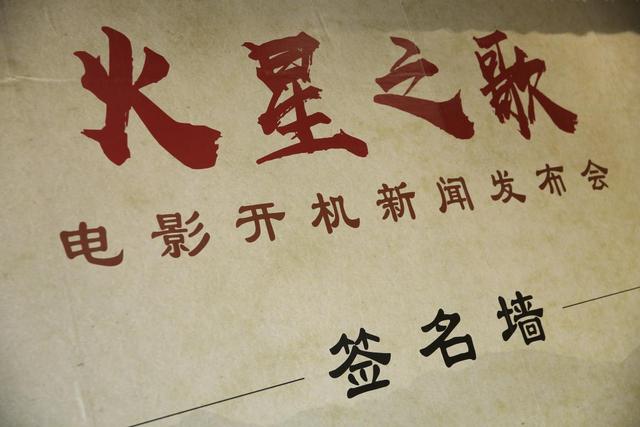 火星之歌
电影开机新闻发布会
签名墙